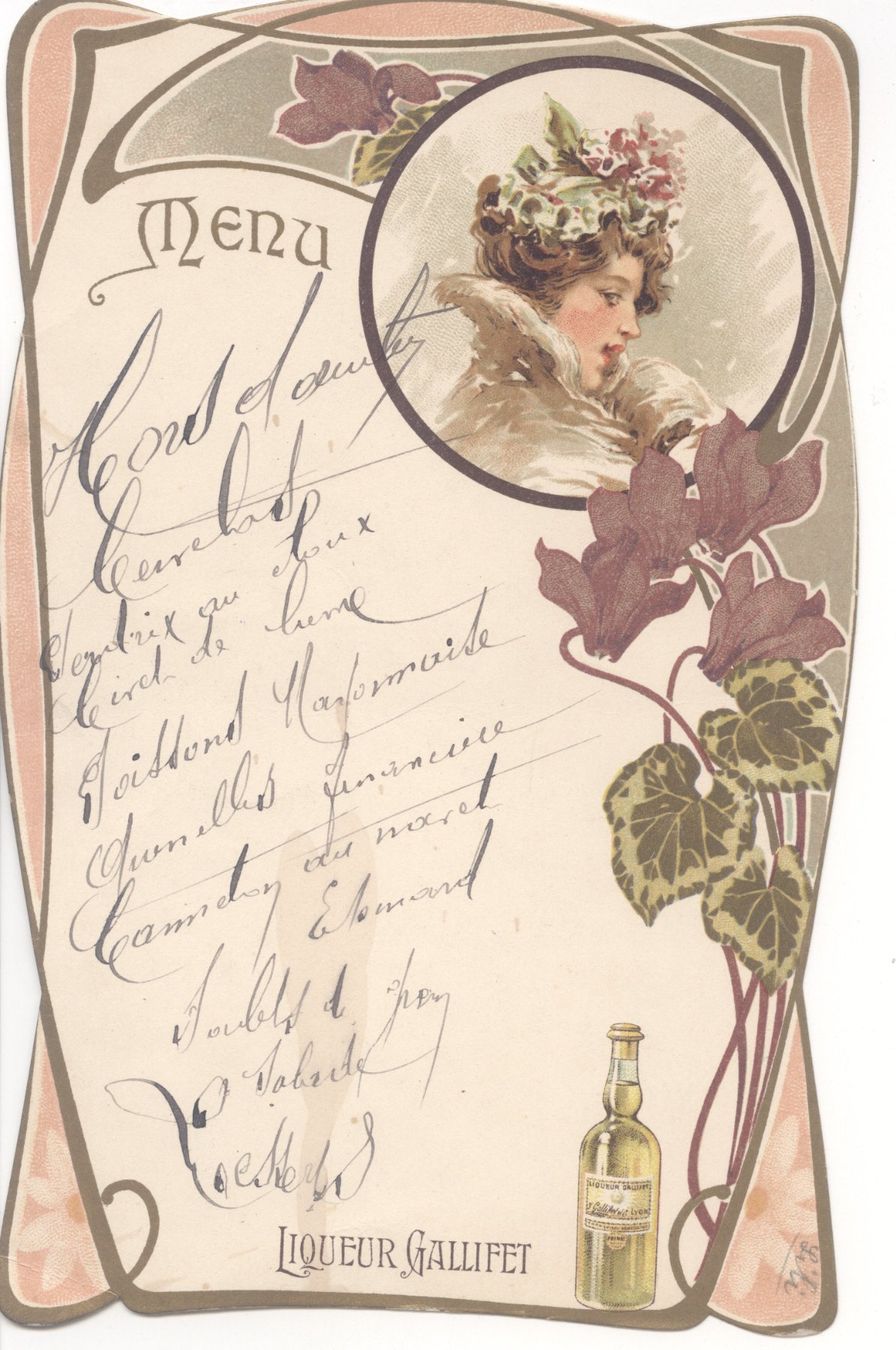 Menu
Hors d'œuvres
Cervelas
Perdrix au choux
Civet de lièvre
Poissons Mayonnaise
Quenelles financière
Canneton au navet
Homard
Poulets de
La Salade
Desserts
Liqueur Gallifet
LIQUEUR GALLIFET
LYON